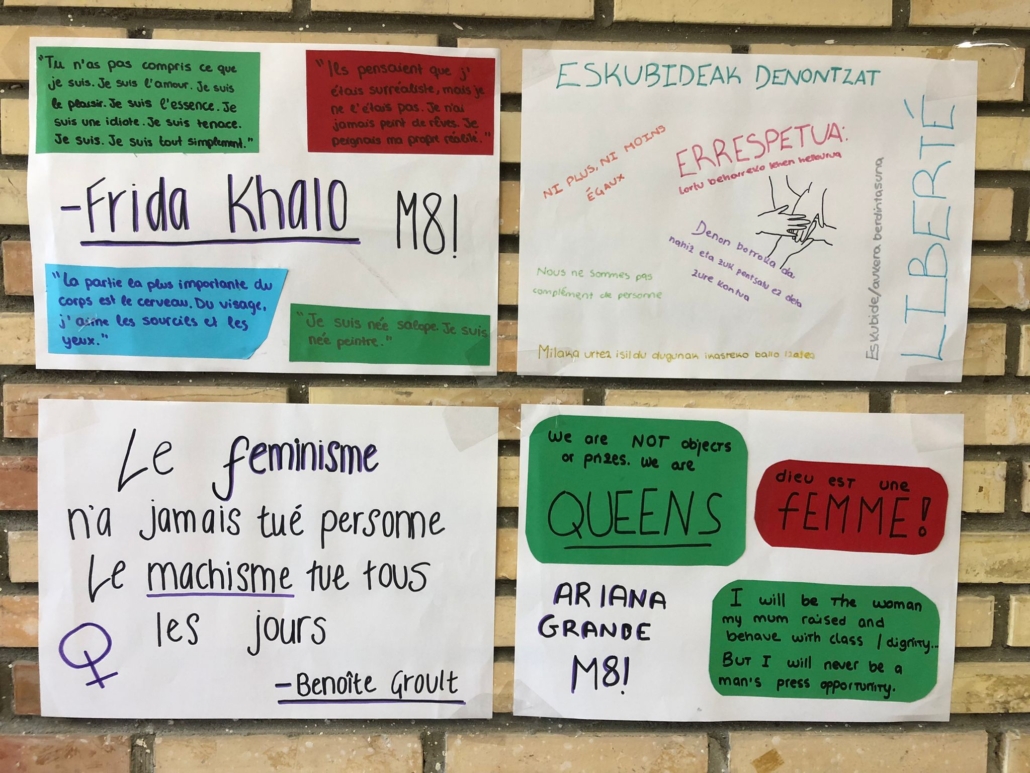 "Tu n'as pas compris ce que
je suis. Je suis l'amour. Je suis
le plaisir. Je suis l'essence. Je
suis une idiote. Je suis tenace.
Je suis. Je suis tout simplement."
"Ils pensaient que j'
étais surréaliste, mais je
ne l'étais pas. Je n'ai
jamais peint de rêves. Je
peignais ma propre réalité."
-Frida Khalo
M8!
"La partie la plus importante du
corps est le cerveau. Du visage,
j'aime les sourcils et les
yeux."
"Je suis née salope. Je suis
née peintre."
ESKUBIDEAK DENONTZAT
NI PLUS, NI MOINS
ÉGAUX
ERRESPETUA:
lortu beharreko lehen helburua
Denon borroka da
nahiz eta zuk pentsatu ez dela
zure kontua
Nous ne sommes pas
complément de personne
Milaka urtez isildu dugunak irakasteko balio izateko
Eskubide/aukera berdintasuna
LIBERTÉ
Le feminisme
n'a jamais tué personne
Le machisme tue tous
les jours
-Benoîte Groult
We are NOT objects
or prizes. We are
QUEENS
dieu est une
fEMME!
ARIANA
GRANDE
M8!
I will be the woman
my mum raised and
behave with class / dignity...
But I will never be a
man's press opportunity.